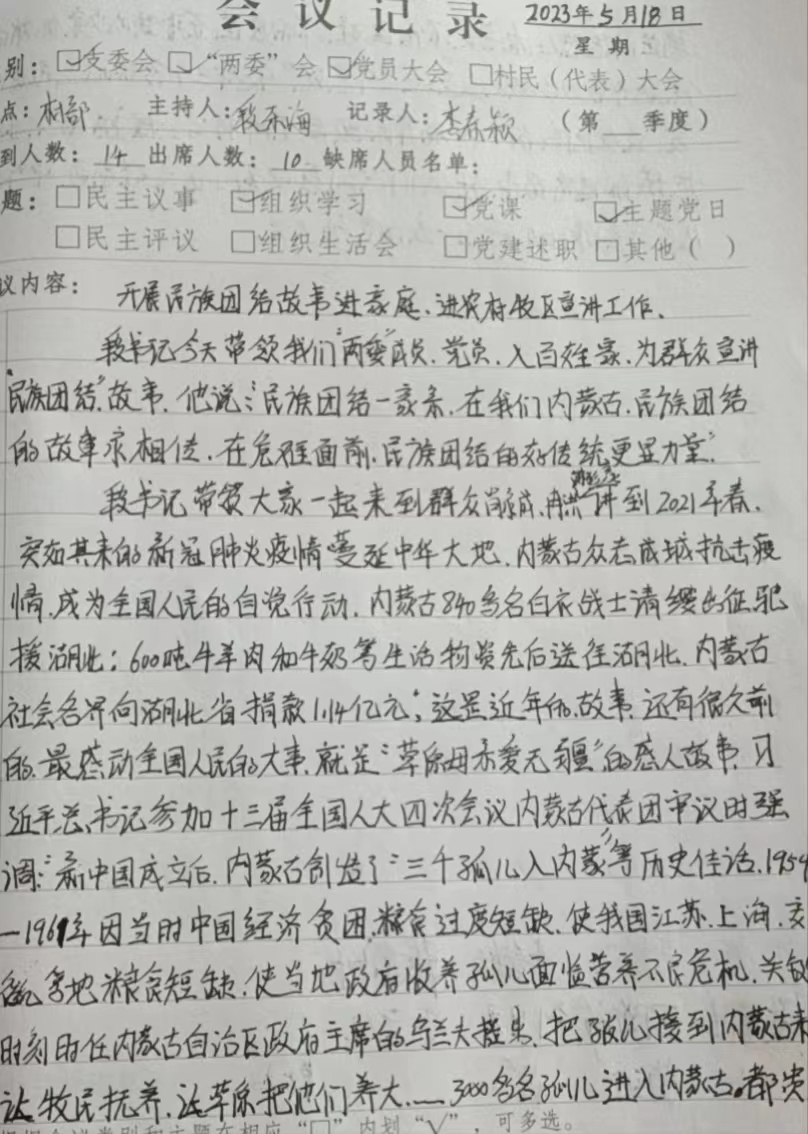 会议记录 2023年5月18日
星期
别：☑支委会 ☑“两委”会 ☑党员大会 □村民（代表）大会
点：村部 主持人：段海 记录人：李春颖 （第 季度）
到人数：14 出席人数：10 缺席人员名单：
题：□民主议事 ☑组织学习 ☑党课 ☑主题党日
□民主评议 □组织生活会 □党建述职 □其他（ ）
议内容： 开展民族团结故事进家庭、进农村牧区宣讲工作。
段书记今天带领我们“两委”成员、党员、入百姓家、为群众宣讲
“民族团结”故事。他说：“民族团结一家亲，在我们内蒙古，民族团结
的故事永相传，在危难面前，民族团结的好传统更显力量”。
段书记带领大家一起来到群众肖 讲到2021年春，
突如其来的新冠肺炎疫情蔓延中华大地，内蒙古众志成城抗击疫
情，成为全国人民的自觉行动，内蒙古840多名白衣战士请缨出征驰
援湖北；600吨牛羊肉和牛奶等生活物资先后送往湖北，内蒙古
社会各界向湖北省捐款1.14亿元”，这是近年的故事，还有很久前
的，最感动全国人民的大事，就是“草原母亲爱无疆”的感人故事，习
近平总书记参加十三届全国人大四次会议内蒙古代表团审议时强
调：“新中国成立后，内蒙古创造了“三千孤儿入内蒙”等历史佳话，1959
—1961年因当时中国经济贫困，粮食过度短缺，使我国江苏、上海、安
徽等地粮食短缺，使当地政府收养孤儿面临营养不良危机，关键
时刻时任内蒙古自治区政府主席的乌兰夫提出，把孤儿接到内蒙古来
让牧民抚养，让草原把他们养大，—3000多名孤儿进入内蒙古。都
“□”内划“√”，可多选。